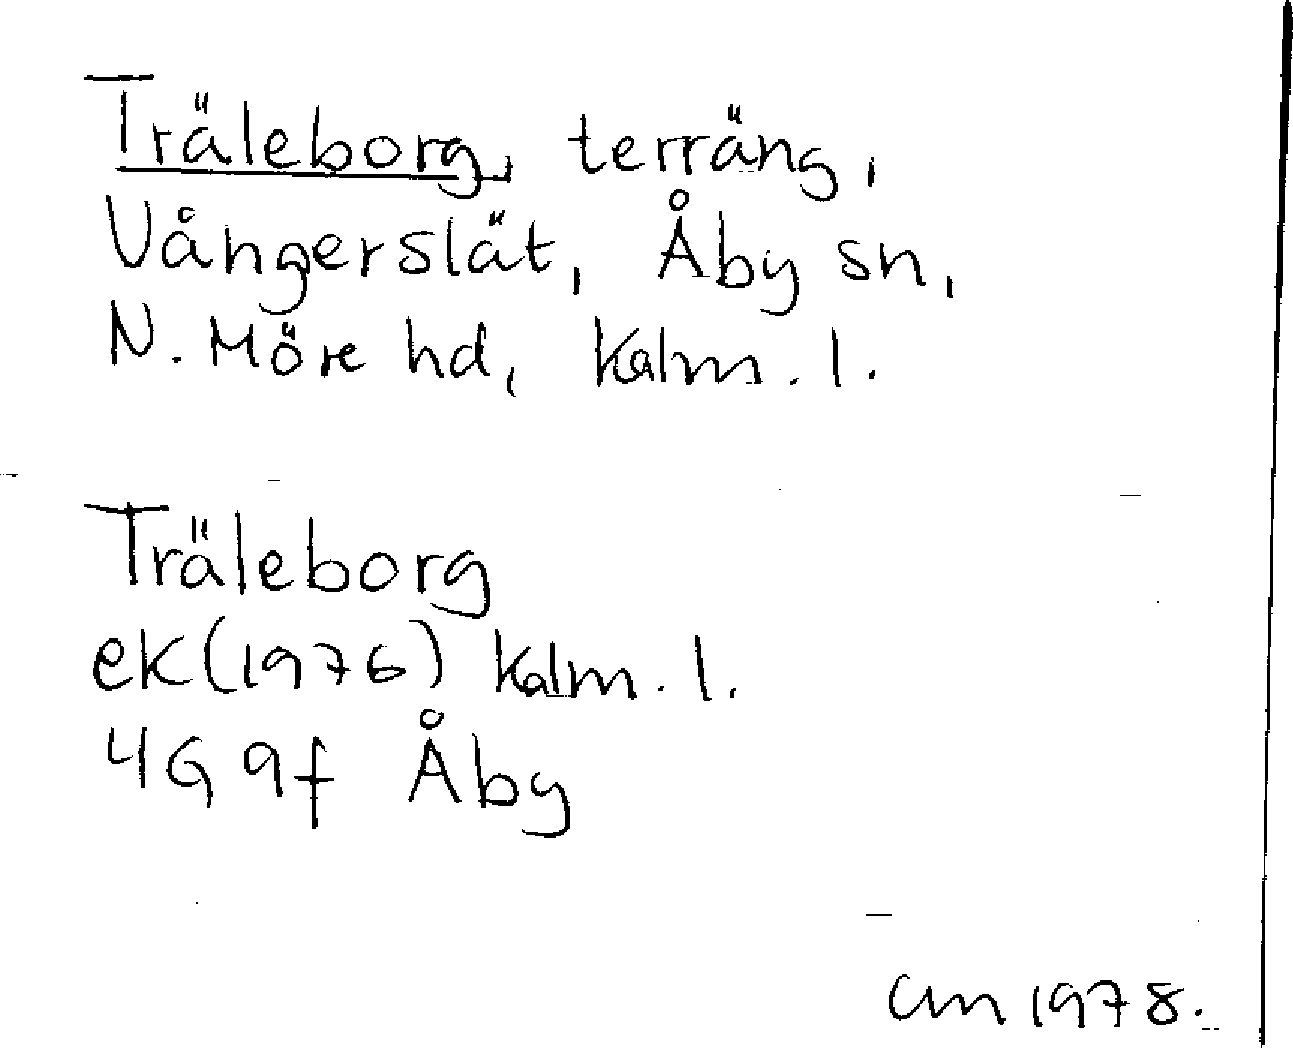 Träleborg, terräng,
Vångerslät, Åby sn,
N. Möre hd, Kalm. l.
Träleborg
ek (1976) Kalm. l.
4G 9f Åby
CM 1978.